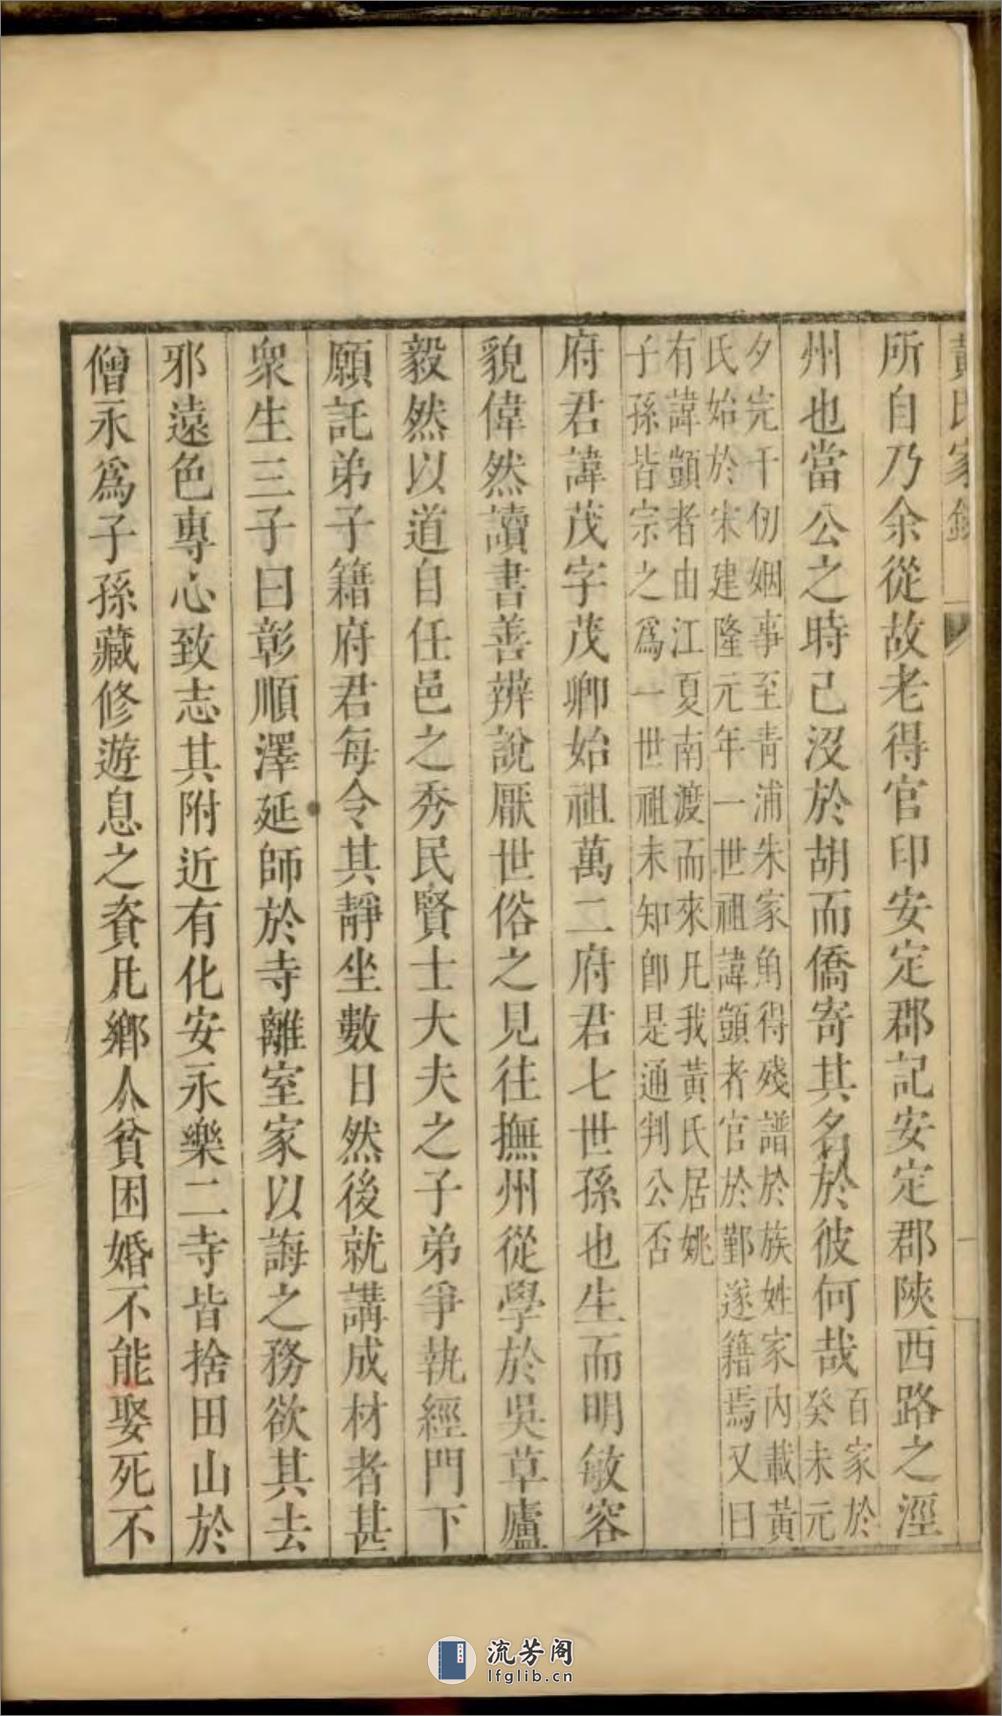 黃氏家錄
所自乃余從故老得官印安定郡記安定郡陝西路之涇
州也當公之時已沒於胡而僑寄其名於彼何哉
百家於
癸未元
夕完干仞姻事至青浦朱家角得殘譜於族姓家內載黃
氏始於宋建隆元年一世祖諱顗者官於鄞遂籍焉又曰
有諱顗者由江夏南渡而來凡我黃氏居姚
子孫皆宗之爲一世祖未知卽是通判公否
府君諱茂字茂卿始祖萬二府君七世孫也生而明敏容
貌偉然讀書善辨說厭世俗之見往撫州從學於吳草廬
毅然以道自任邑之秀民賢士大夫之子弟爭執經門下
願託弟子籍府君每令其靜坐數日然後就講成材者甚
衆生三子曰彰順澤延師於寺離室家以誨之務欲其去
邪遠色專心致志其附近有化安永樂二寺皆捨田山於
僧永爲子孫藏修遊息之資凡鄉人貧困婚不能娶死不
流芳阁
lfglib.cn